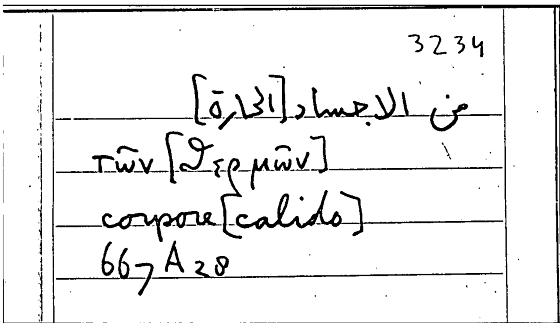 3234
من الاجساد [الحارة]
τῶν [θερμῶν]
corpore [calido]
667 A 28